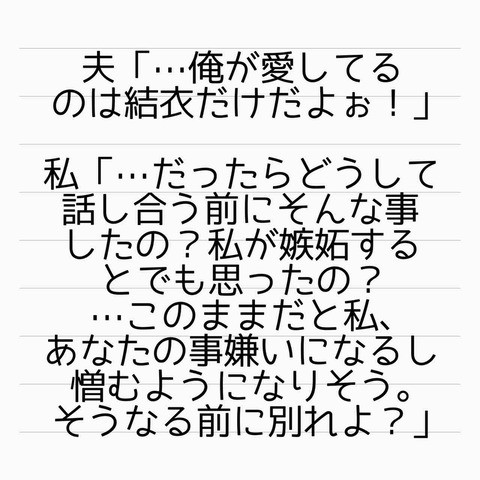 夫「…俺が愛してる
のは結衣だけだよぉ！」
私「…だったらどうして
話し合う前にそんな事
したの？私が嫉妬する
とでも思ったの？
…このままだと私、
あなたの事嫌いになるし
憎むようになりそう。
そうなる前に別れよ？」